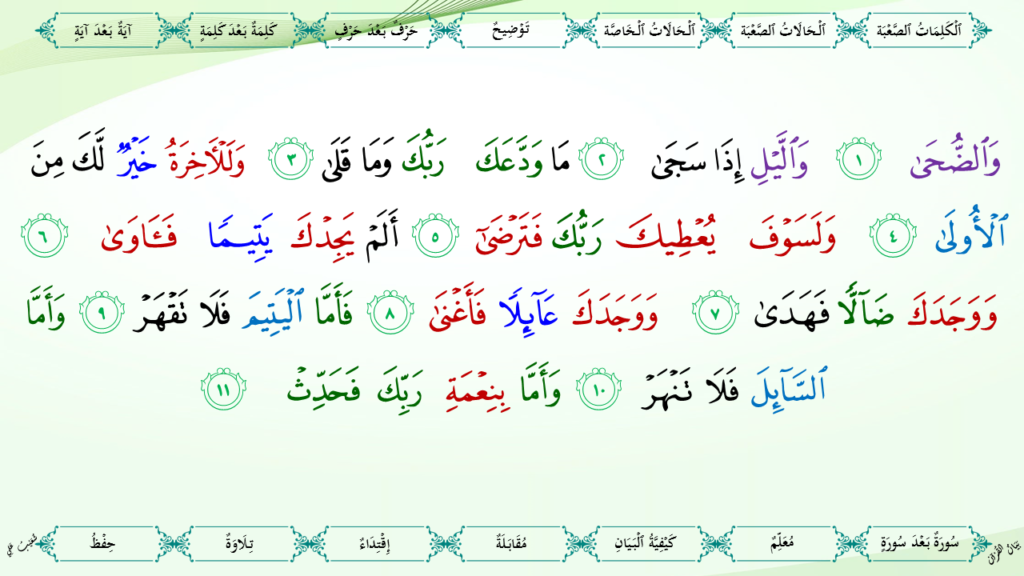 ٱلْكَلِمَاتُ ٱلصَّعْبَة
ٱلْحَالَاتُ ٱلصَّعْبَة
ٱلْحَالَاتُ ٱلْخَاصَّة
تَوْضِيحٌ
حَرْفٌ بَعْدَ حَرْفٍ
كَلِمَةٌ بَعْدَ كَلِمَةٍ
آيَةٌ بَعْدَ آيَةٍ
وَٱلضُّحَىٰ ١ وَٱلَّيْلِ إِذَا سَجَىٰ ٢ مَا وَدَّعَكَ رَبُّكَ وَمَا قَلَىٰ ٣ وَلَلْـَٔاخِرَةُ خَيْرٌ لَّكَ مِنَ
ٱلْأُولَىٰ ٤ وَلَسَوْفَ يُعْطِيكَ رَبُّكَ فَتَرْضَىٰٓ ٥ أَلَمْ يَجِدْكَ يَتِيمًا فَـَٔاوَىٰ ٦
وَوَجَدَكَ ضَآلًّا فَهَدَىٰ ٧ وَوَجَدَكَ عَآئِلًا فَأَغْنَىٰ ٨ فَأَمَّا ٱلْيَتِيمَ فَلَا تَقْهَرْ ٩ وَأَمَّا
ٱلسَّآئِلَ فَلَا تَنْهَرْ ١٠ وَأَمَّا بِنِعْمَةِ رَبِّكَ فَحَدِّثْ ١١
سُورَةٌ بَعْدَ سُورَةٍ
مُعَلِّمٌ
كَيْفِيَّةُ ٱلْبَيَانِ
مُقَابَلَةٌ
إِقْتِدَاءٌ
تِلَاوَةٌ
حِفْظٌ